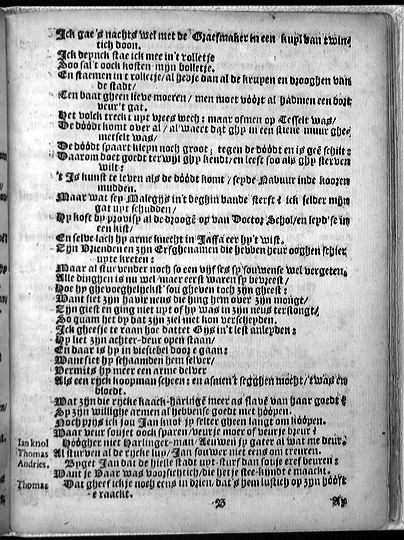 Ick gae's nachts wel met de Graefmaker in een kuyl van twin-
tich doon.
Ick denck stae ick mee in't rolletje
Soo sal't oock kosten mijn bolletje.
En staemen in t rolletje/ al hedje dan al de kruyen en drooghen van
de stadt/
Ten baat gheen lieve moeren / men moet vóórt al hadmen een bort
veur't gat.
Het volck treckt upt vrees wech: maar ofmen op Tesselt was/
De dóódt komt over al / al waert dat ghy in een stiene muur ghe-
metselt was/
De dóódt spaart kleyn noch groot, tegen de dóódt en is geê schilt:
Daarom doet goedt terwijl ghy kendt/ en leeft soo als ghy sterven
wilt:
't Is kunst te leven als de dóódt komt / seyde Nabuur inde kooren
mudden.
Maar wat sey Malegijs in't beghin vande sterft ick selder mijn
gat uyt schudden/
Hy koft by provisy al de drooge op van Doctor Schol/en leyd'se in
een kist/
En selve lach hy arme knecht in Jaffa eer hy't wist.
Zijn Vrienden en zijn Erfghenamen die hebben heur ooghen schier
upte kreten:
Maar al stur vender noch so een vijf ses sy souwense wel vergeten,
Alle dinghen is nu wel maer eerst waren sy bevreest/
Hoe hy ghevooghelhekst sou gheven toch zijn gheest:
Want siet zijn havic neus die hing hem over zijn mongt/
Zijn giest en ging niet upt of hy was in zijn neus verstongt/
So quam het op dat zijn ziel niet kon verscheyden.
Ick gheefje te raan hoe datter Gijs in't lest anleyden:
Hy liet zijn achter-deur open staan/
En daar is hy in viesichel door e gaan:
Want siet hy schaamden hem selver/
Vermits hy meer een arme delver
Als een rijck koopman scheen: en asmen't segghen mocht/ t'was en
bloedt.
Wat zijn die rycke kaack-haringe meer as slave van haar goedt?
Sy zijn willighe armen al hebbense goedt met hóópen.
Noch prijs ick jou Jan knol jy selter gheen langt om kóópen.
Waar veur soujet oock sparen / veur je moer of veur je breur?
Jan knol Hóógher niet Harlinger-man/ Aeuwen sy gater al wat me deur.
Thomas Al sturven al de rycke luy/ Jan souwer niet eens om treuren.
Andries. Byget Jan dat de hielle stadt upt-sturf dan souje eref beuren:
Want je Vaar was voorsichtich/ die het je stee-kyndt e maackt.
Thomas Dat gheef ickje noch eens in drien, dat's hem lustich op zijn hóóft
e raackt.
B Ay